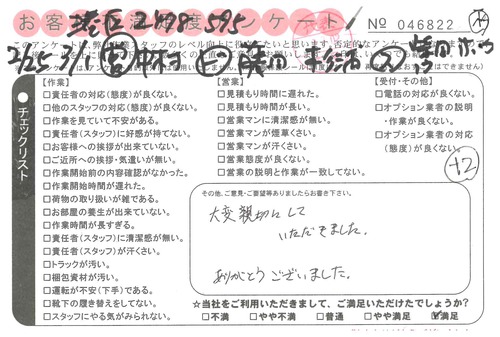 お客 度 ケート
港区 2478 595
No 046822
【作業】
□責任者の対応(態度)が良くない。
□他のスタッフの対応(態度)が良くない。
□作業を見ていて不安がある。
□責任者(スタッフ)に好感が持てない。
□お客様への挨拶が出来ていない。
□ご近所への挨拶・気遣いが無い。
□作業開始前の内容確認がなかった。
□作業開始時間が遅れた。
□荷物の取り扱いが雑である。
□お部屋の養生が出来ていない。
□作業時間が長すぎる。
□責任者(スタッフ)に清潔感が無い。
□責任者(スタッフ)が汗くさい。
□トラックが汚い。
□梱包資材が汚い。
□運転が不安(下手)である。
□靴下の履き替えをしてない。
□スタッフにやる気がみられない。
【営業】
□見積もり時間に遅れた。
□見積もり時間が長い。
□営業マンに清潔感が無い。
□営業マンが煙草くさい。
□営業マンが汗くさい。
□営業態度が良くない。
□営業の説明と作業が一致してない。
【受付・その他】
□電話の対応が良くない。
□オプション業者の説明
・作業が良くない。
□オプション業者の対応
(態度)が良くない。
+2
チェックリスト
その他、ご意見・ご要望等ありましたらお書き下さい。
大変親切にして
いただきました。
ありがとうございました。
☆当社をご利用いただきまして、ご満足いただけてしょうか?
□不満 □やや不満 □普通 □やや満足 ☑満足